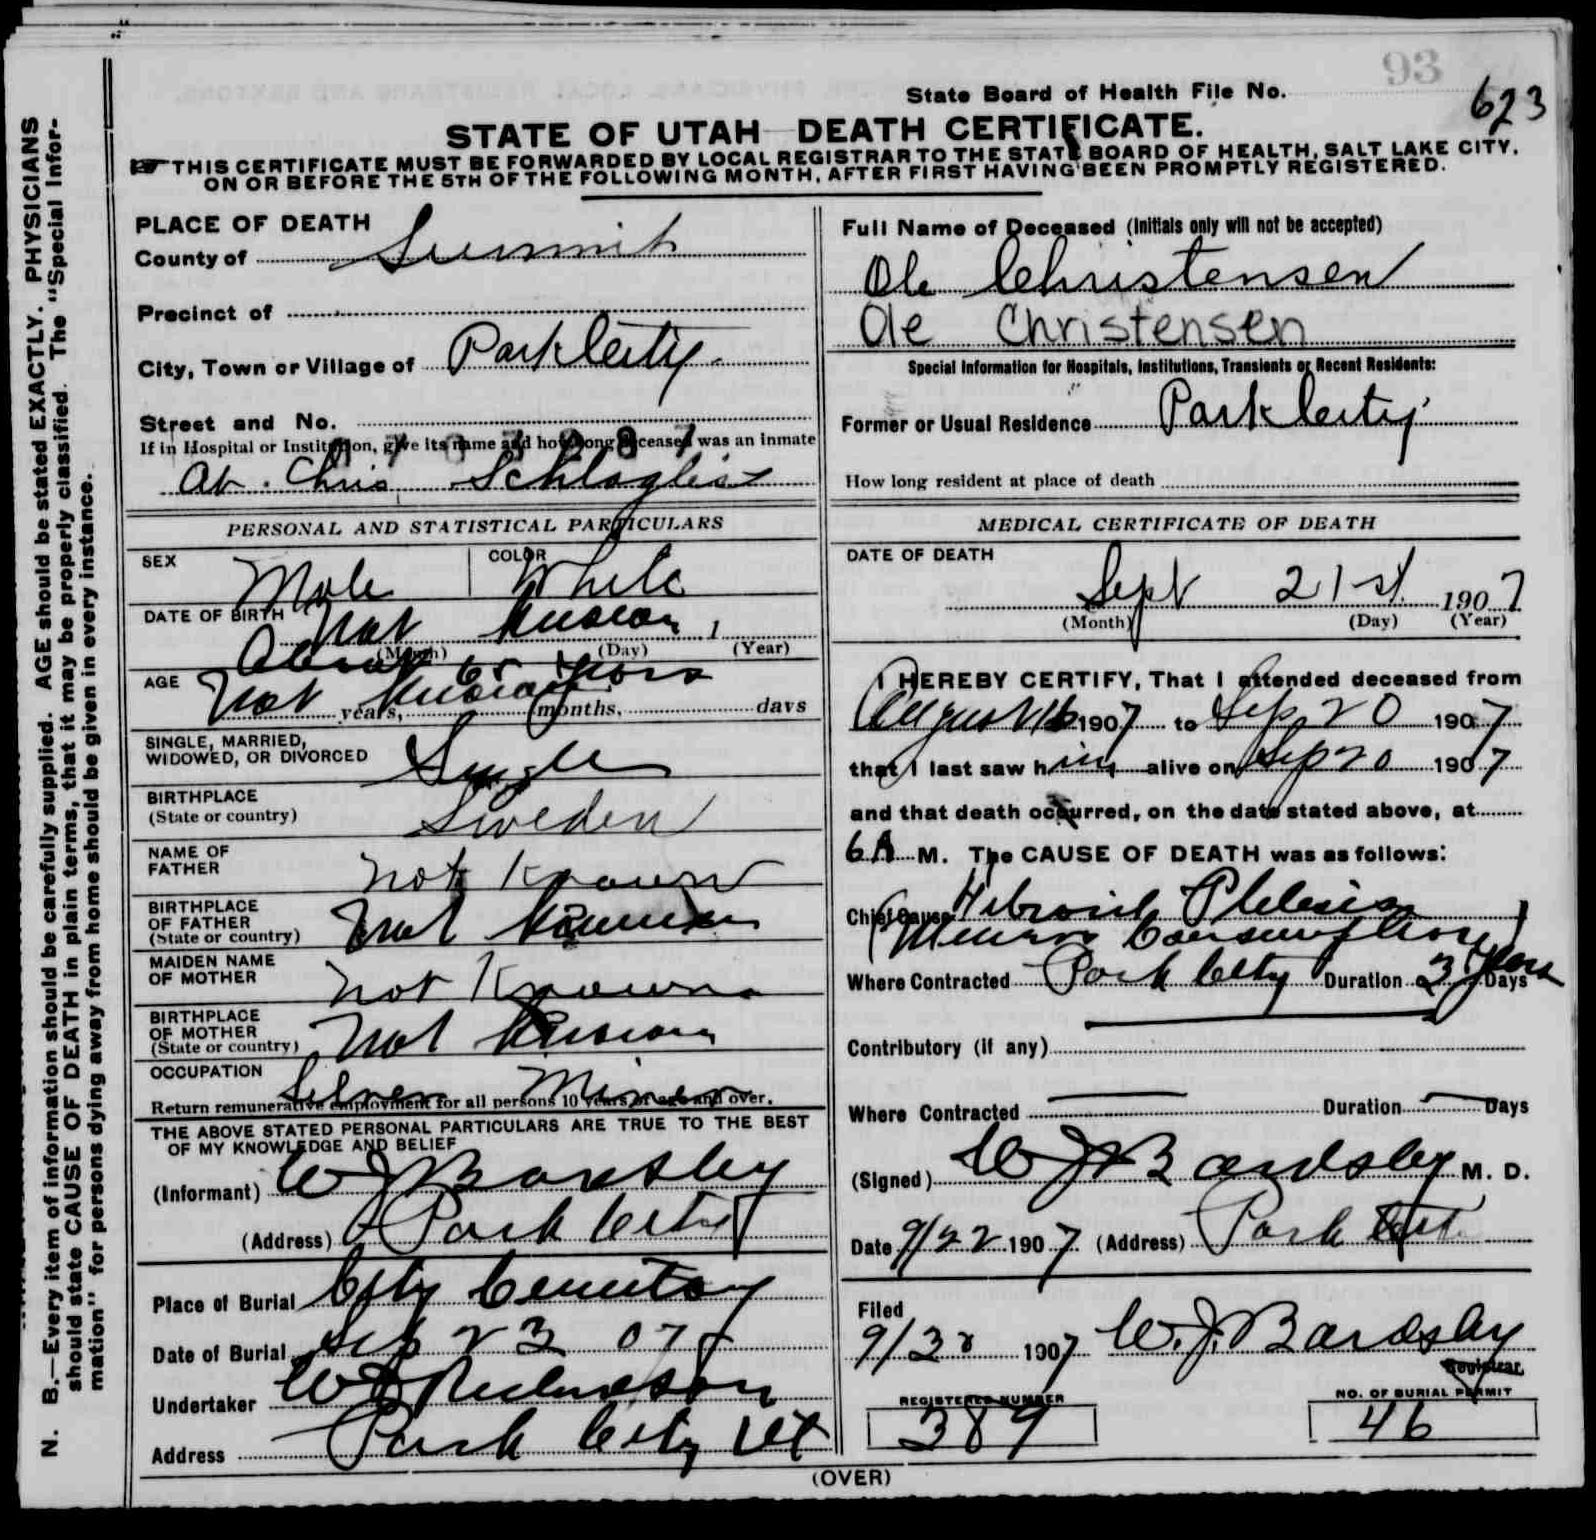 93
State Board of Health File No. 623
STATE OF UTAH DEATH CERTIFICATE.
THIS CERTIFICATE MUST BE FORWARDED BY LOCAL REGISTRAR TO THE STATE BOARD OF HEALTH, SALT LAKE CITY,
ON OR BEFORE THE 5TH OF THE FOLLOWING MONTH, AFTER FIRST HAVING BEEN PROMPTLY REGISTERED.
N. B.—Every item of information should be carefully supplied. AGE should be stated EXACTLY. PHYSICIANS
should state CAUSE OF DEATH in plain terms, that it may be properly classified. The "Special Infor-
mation" for persons dying away from home should be given in every instance.
PLACE OF DEATH
County of Summit
Precinct of
City, Town or Village of Park City
Street and No.
If in Hospital or Institution, give its name and how long deceased was an inmate
At Chris
PERSONAL AND STATISTICAL PARTICULARS
SEX Male COLOR White
DATE OF BIRTH Not Known 1
(Month) (Day) (Year)
About 65 Years
AGE Not Known years, months, days
SINGLE, MARRIED,
WIDOWED, OR DIVORCED Single
BIRTHPLACE
(State or country) Sweden
NAME OF
FATHER not Known
BIRTHPLACE
OF FATHER
(State or country) Not Known
MAIDEN NAME
OF MOTHER not Known
BIRTHPLACE
OF MOTHER
(State or country) Not Known
OCCUPATION Silver Miner
Return remunerative employment for all persons 10 years of age and over.
THE ABOVE STATED PERSONAL PARTICULARS ARE TRUE TO THE BEST
OF MY KNOWLEDGE AND BELIEF
(Informant) W J Bardsley
(Address) Park City
Place of Burial City Cemetery
Date of Burial Sep 23 07
Undertaker Richardson
Address Park City Ut
Full Name of Deceased (Initials only will not be accepted)
Ole Christensen
Ole Christensen
Special Information for Hospitals, Institutions, Transients or Recent Residents:
Former or Usual Residence Park City
How long resident at place of death
MEDICAL CERTIFICATE OF DEATH
DATE OF DEATH
Sept 21st 1907
(Month) (Day) (Year)
I HEREBY CERTIFY, That I attended deceased from
August 16 1907 to Sep 20 1907
that I last saw him alive on Sep 20 1907
and that death occurred, on the date stated above, at
6 A M. The CAUSE OF DEATH was as follows:
Chief Cause Fibroid Phthisis
(Miners Consumption)
Where Contracted Park City Duration 3 Years Days
Contributory (if any)
Where Contracted Duration Days
(Signed) W J Bardsley M. D.
Date 9/22 1907 (Address) Park City
Filed
9/30 1907 W. J. Bardsley
Registrar
REGISTERED NUMBER
389
NO. OF BURIAL PERMIT
46
(OVER)